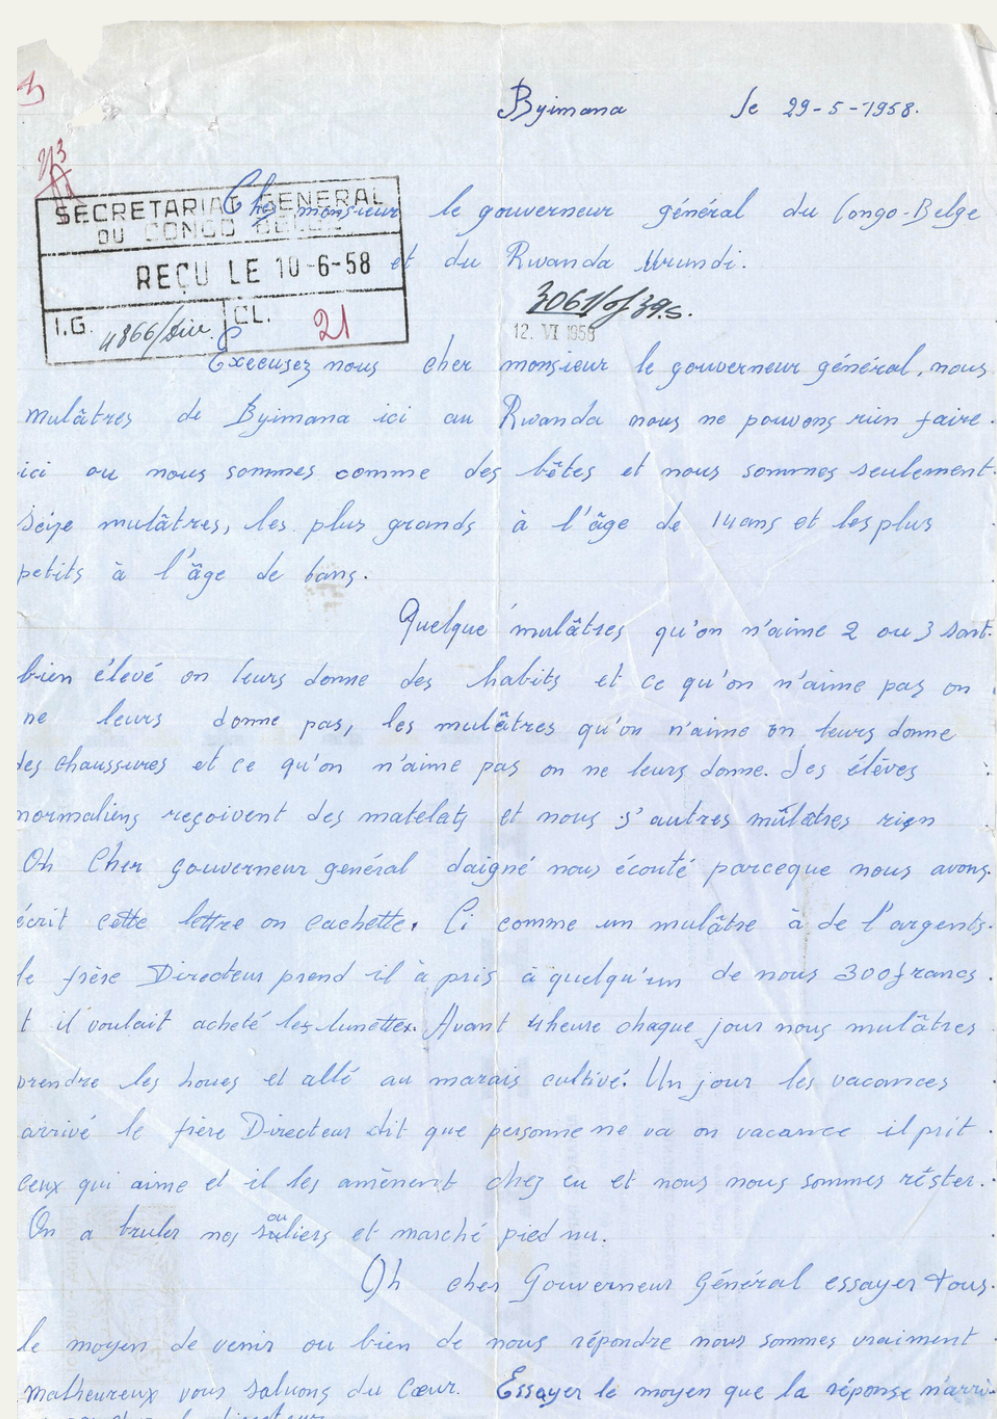 Byimana le 29-5-1958.
SECRETARIAT GENERAL
DU CONGO BELGE
REÇU LE 10-6-58
I.G. 4866/Div. CL. 21
Cher monsieur le gouverneur général du Congo-Belge
et du Rwanda Urundi.
12. VI 1958
Execusez nous cher monsieur le gouverneur général, nous
mulâtres de Byimana ici au Rwanda nous ne pouvons rien faire.
ici ou nous sommes comme des bêtes et nous sommes seulement.
seize mulâtres, les plus grands à l'âge de 14ans et les plus
petits à l'âge de 6ans.
Quelque mulâtres qu'on n'aime 2 ou 3 sont.
bien élevé on leurs donne des habits et ce qu'on n'aime pas on
ne leurs donne pas, les mulâtres qu'on n'aime on leurs donne
des chaussures et ce qu'on n'aime pas on ne leurs donne. Les élèves
normaliens reçoivent des matelats et nous d'autres mulâtres rien
Oh Cher gouverneur général daigné nous écouté parceque nous avons.
écrit cette lettre on cachette. Ci comme un mulâtre à de l'argents.
le frère Directeur prend il à pris à quelqu'un de nous 300francs.
t il voulait acheté les lunettes. Avant 4heure chaque jour nous mulâtres
prendre les houes et allé au marais cultivé. Un jour les vacances
arrivé le frère Directeur dit que personne ne va on vacance il prit.
ceux qui aime et il les amènent chez eu et nous nous sommes réster.
On a bruler nos souliers et marché pied nu.
Oh cher Gouverneur Général essayer tous.
le moyen de venir ou bien de nous répondre nous sommes vraiment
malheureux vous saluons du Cœur. Essayer le moyen que la réponse n'arri-